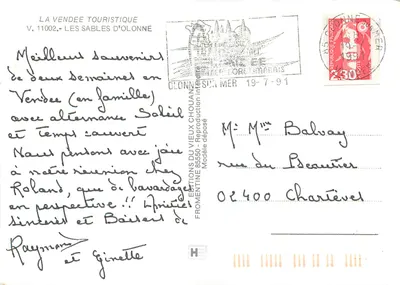 LA VENDEE TOURISTIQUE
V. 11002.- LES SABLES D'OLONNE
Meilleurs souvenirs
de deux semaines en
Vendée (en famille)
avec alternance Soleil
et temps couvert
Nous pensons avec joie
à notre réunion chez
Roland, que de bavardages
en perspective !! Amitiés
sincères et Baisers de
Raymond
et Ginette
EDITIONS DU VIEUX CHOUAN
FROMENTINE 85550 - Reproduction interdite
Modèle déposé
OLONNE SUR MER 19-7-91
2,30
Mr Mme Balvay
rue du Beautier
02400 Chartèves